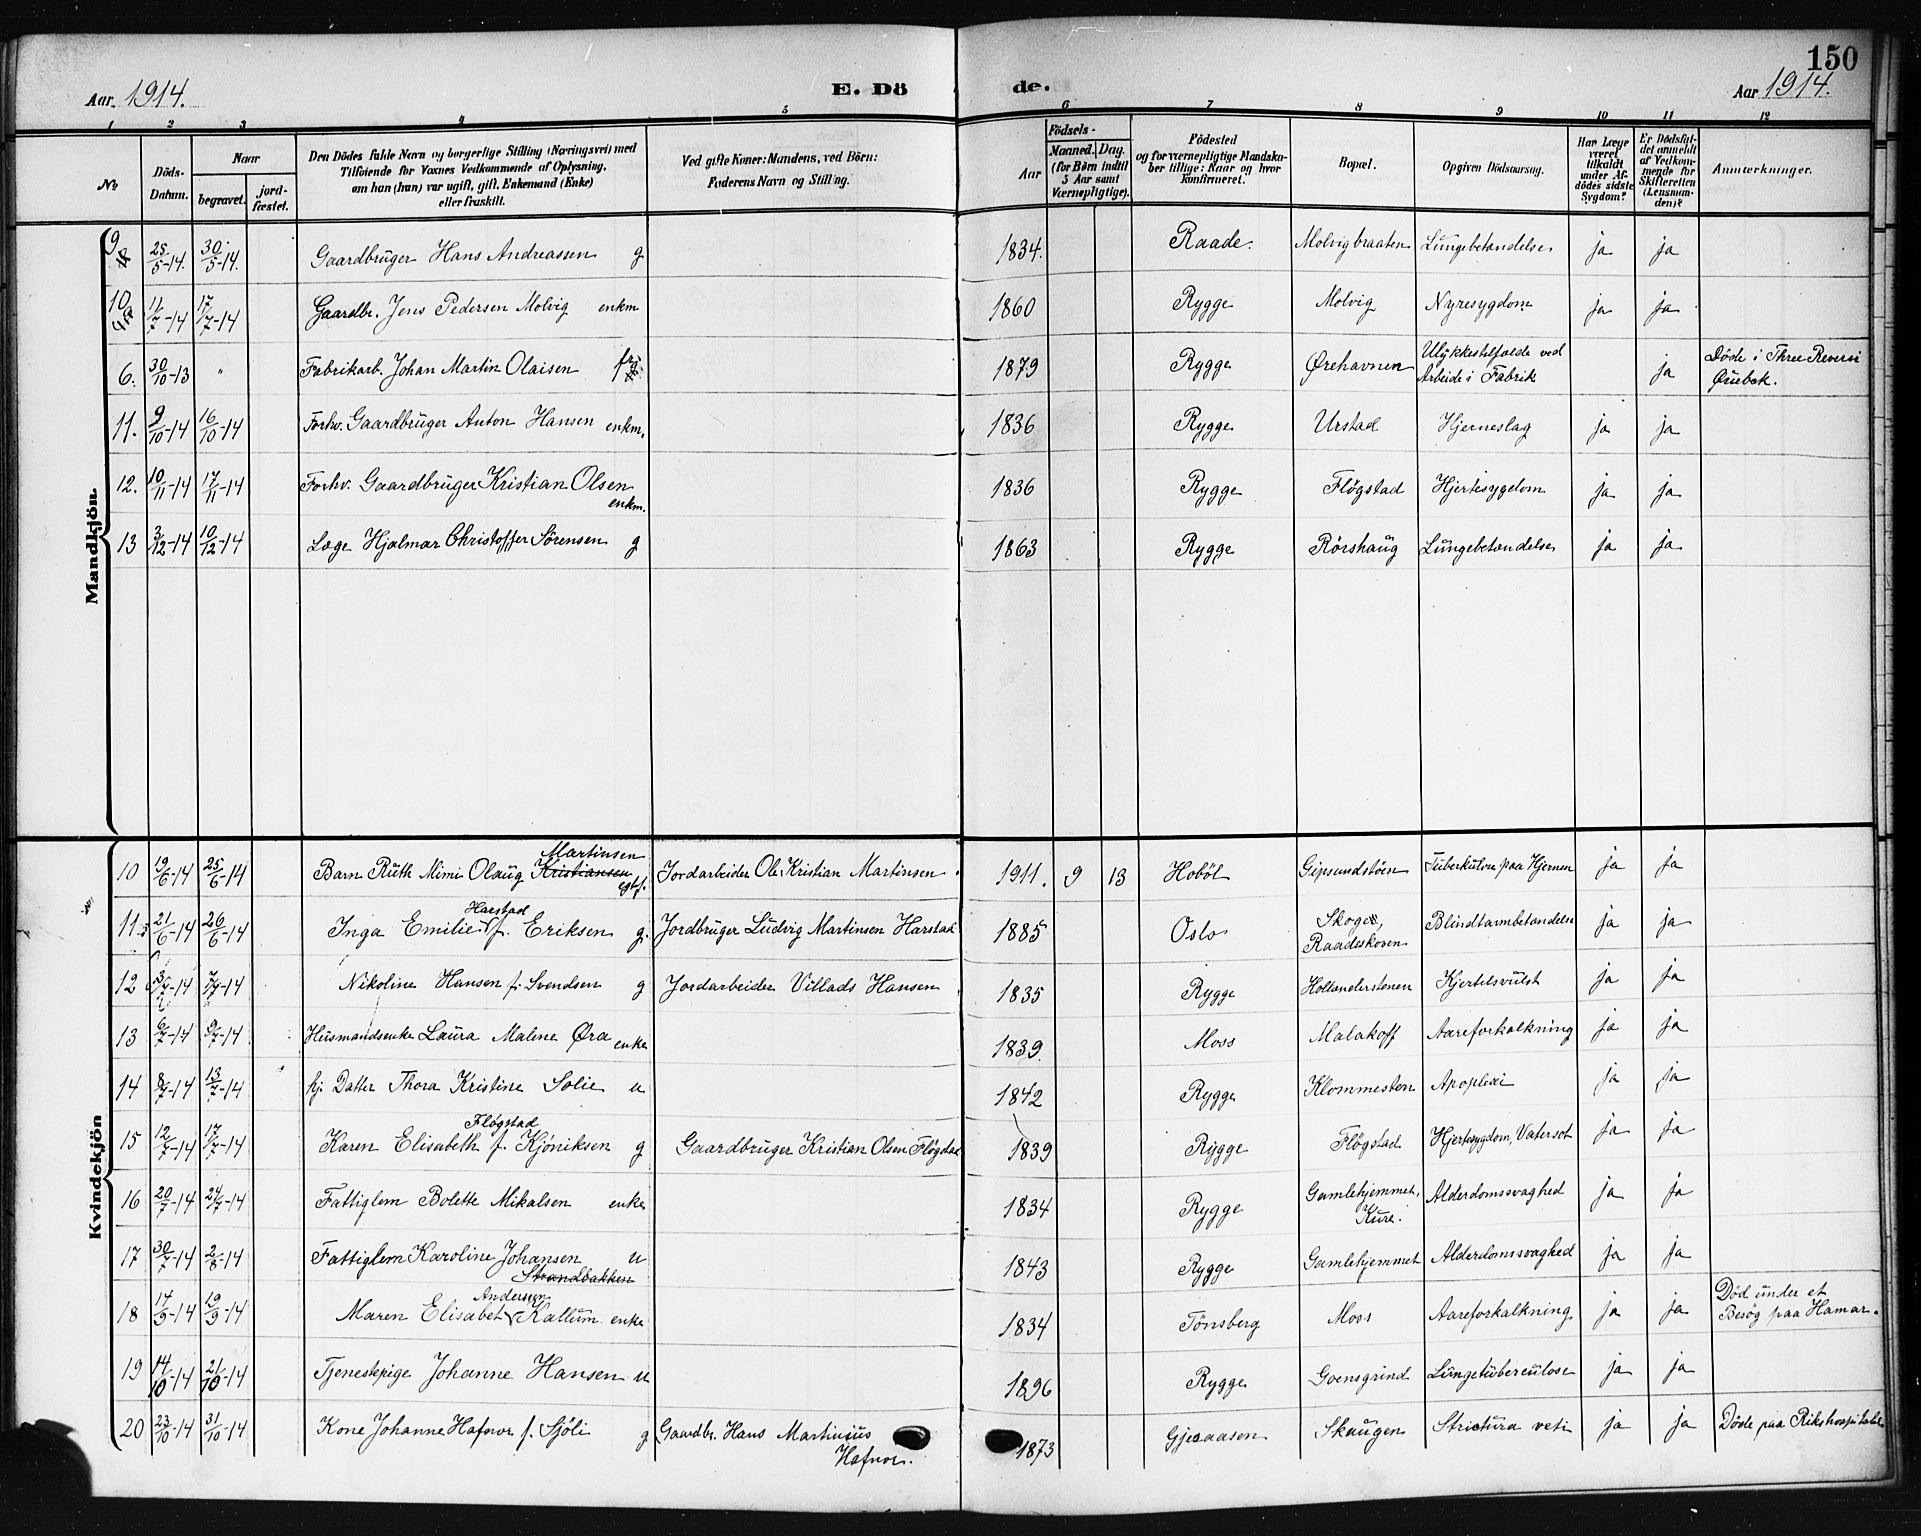 150
Aar 1914. E. Dö de. Aar 1914.
1 2 3 4 5 6 7 8 9 10 11 12
No
Döds-
Datum.
Naar
begravet. jord-
fæstet.
Den Dödes fulde Navn og borgerlige Stilling (Næringsvei) med
Tilföiende for Voxnes Vedkommende af Oplysning,
om han (hun) var ugift, gift, Enkemand (Enke)
eller fraskilt.
Ved gifte Koner: Mandens, ved Börn:
Faderens Navn og Stilling.
Födsels-
Aar Maaned. Dag.
(for Börn indtil
5 Aar samt
Værnepligtige).
Födested
og for værnepligtige Mandska-
ber tillige: Naar og hvor
konfirmeret.
Bopæl.
Opgiven Dödsaarsag.
Har Læge
været
tilkaldt
under Af-
dödes sidste
Sygdom?
Er Dödsfal-
det anmeldt
af Vedkom-
mende for
Skifteretten
(Lensman-
den)?
Anmærkninger.
Mandkjön.
9 25/5-14. 30/5-14. Gaardbruger Hans Andreassen g. 1834. Raade. Molvigbraaten Lungebetændelse ja ja
10 11/7-14 17/7-14 Gaardbr. Jens Pedersen Molvig enkm 1860 Rygge Molvig Nyresygdom ja ja
6. 30/10-13 " Fabrikarb. Johan Martin Olaisen 1879 Rygge Ørehavnen Ulykkestilfælde ved
Arbeide i Fabrik ja Døde i Three
Quebek.
11. 9/10-14 16/10-14 Forhv. Gaardbruger Anton Hansen enkm. 1836 Rygge Urstad Hjerneslag ja ja
12. 10/11-14 17/11-14 Forhv. Gaardbruger Kristian Olsen
enkm. 1836 Rygge Fløgstad Hjertesygdom ja ja
13 3/12-14 10/12-14 Læge Hjalmar Christoffer Sørensen g 1863 Rygge Rörshaug Lungebetændelse ja ja
Kvindekjön
10 19/6-14 25/6-14 Barn Ruth Mimi Olaug Kristiansen Martinsen
egtf. Jordarbeider Ole Kristian Martinsen. 1911. 9 13 Hobøl Gipsundstöen Tuberkulose paa Hjernen ja ja
11 21/6-14 26/6-14 Inga Emilie Harstad f. Eriksen g. Jordbruger Ludvig Martinsen Harstad 1885 Oslo Skoge,
Raadeskoven Blindtarmbetændelse ja ja
12 3/7-14 7/7-14 Nikoline Hansen f. Svendsen g Jordarbeider Villads Hansen 1835 Rygge Hollænderstenen Kjertelsvulst ja ja
13 6/7-14 9/7-14 Husmandsenke Laura Malene Øra enke 1839. Moss Malakoff Aareforkalkning ja ja
14 8/7-14 13/7-14 hj. Datter Thora Kristine Solie u 1842 Rygge Klommesten Apoplexi ja ja
15 12/7-14 17/7-14 Karen Elisabeth Fløgstad f. Kjöniksen g Gaardbruger Kristian Olsen Fløgstad 1839 Rygge Fløgstad Hjertesygdom, Vatersot ja ja
16 20/7-14 24/7-14 Fattiglem Bolette Mikalsen enke 1834 Rygge Gamlehjemmet,
Kure. Alderdomssvaghed ja ja
17 30/7-14 2/8-14 Fattiglem Karoline Johansen u 1843 Rygge Gamlehjemmet Alderdomssvaghed ja ja
Strandbakken
18 14/9-14 19/9-14 Maren Elisabet Andersen Kallum enke 1834 Tönsberg Moss Aareforkalkning ja ja Død under et
Besøg paa Hamar.
19 14/10-14 21/10-14 Tjenestepige Johanne Hansen u 1896 Rygge Goensgrind Lungetuberculose ja ja
20 23/10-14 31/10-14 Kone Johanne Hafnor f. Sjöli g Gaardbr. Hans Martinius
Hafnor. 1873 Gjesaasen Skaugen Strictura veti ja ja Døde paa Rikshospitalet